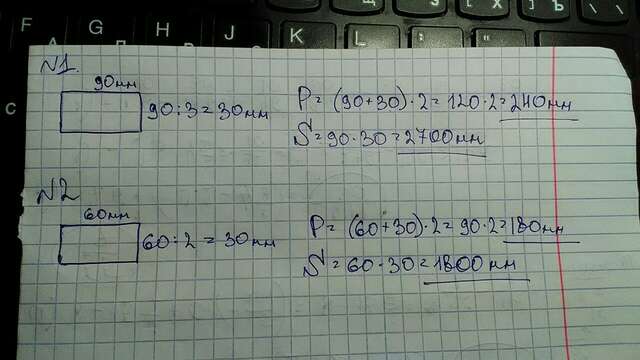 F G H J K L
А П Р О Л Д
C
N1.
90мм
90:3=30мм
P=(90+30)·2=120·2=240мм
S=90·30=2700мм
N2
60мм
60:2=30мм
P=(60+30)·2=90·2=180мм
S=60·30=1800мм